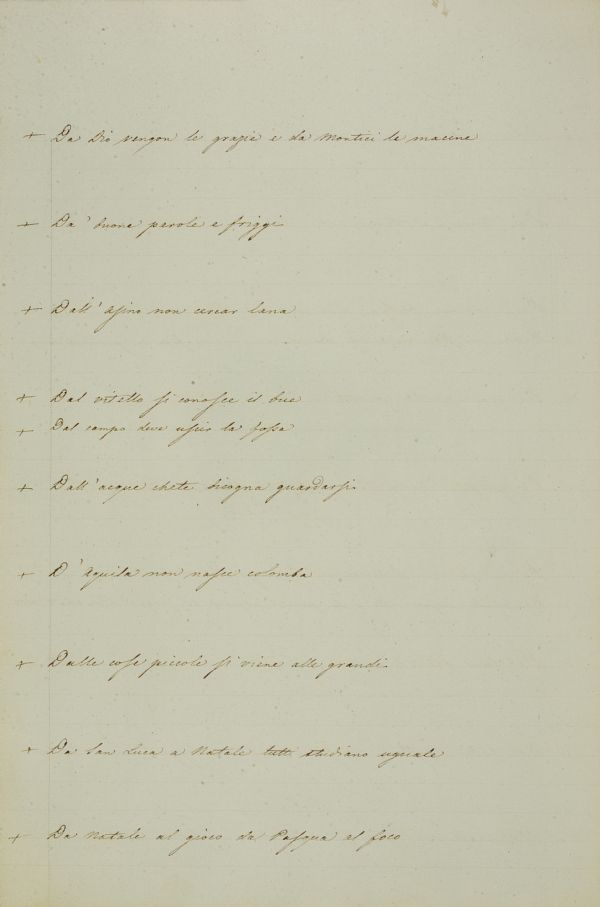 + Da Dio vengon le grazie e da Montici le macine
+ Da' buone parole e friggi
+ Dall' asino non cercar lana
+ Dal vitello si conosce il bue
+ Dal campo deve uscir la fossa
+ Dall' acque chete bisogna guardarsi
+ D' aquila non nasce colomba
+ Dalle cose piccole si viene alle grandi
+ Da San Luca a Natale tutti studiano uguale
+ Da Natale al gioco da Pasqua al foco